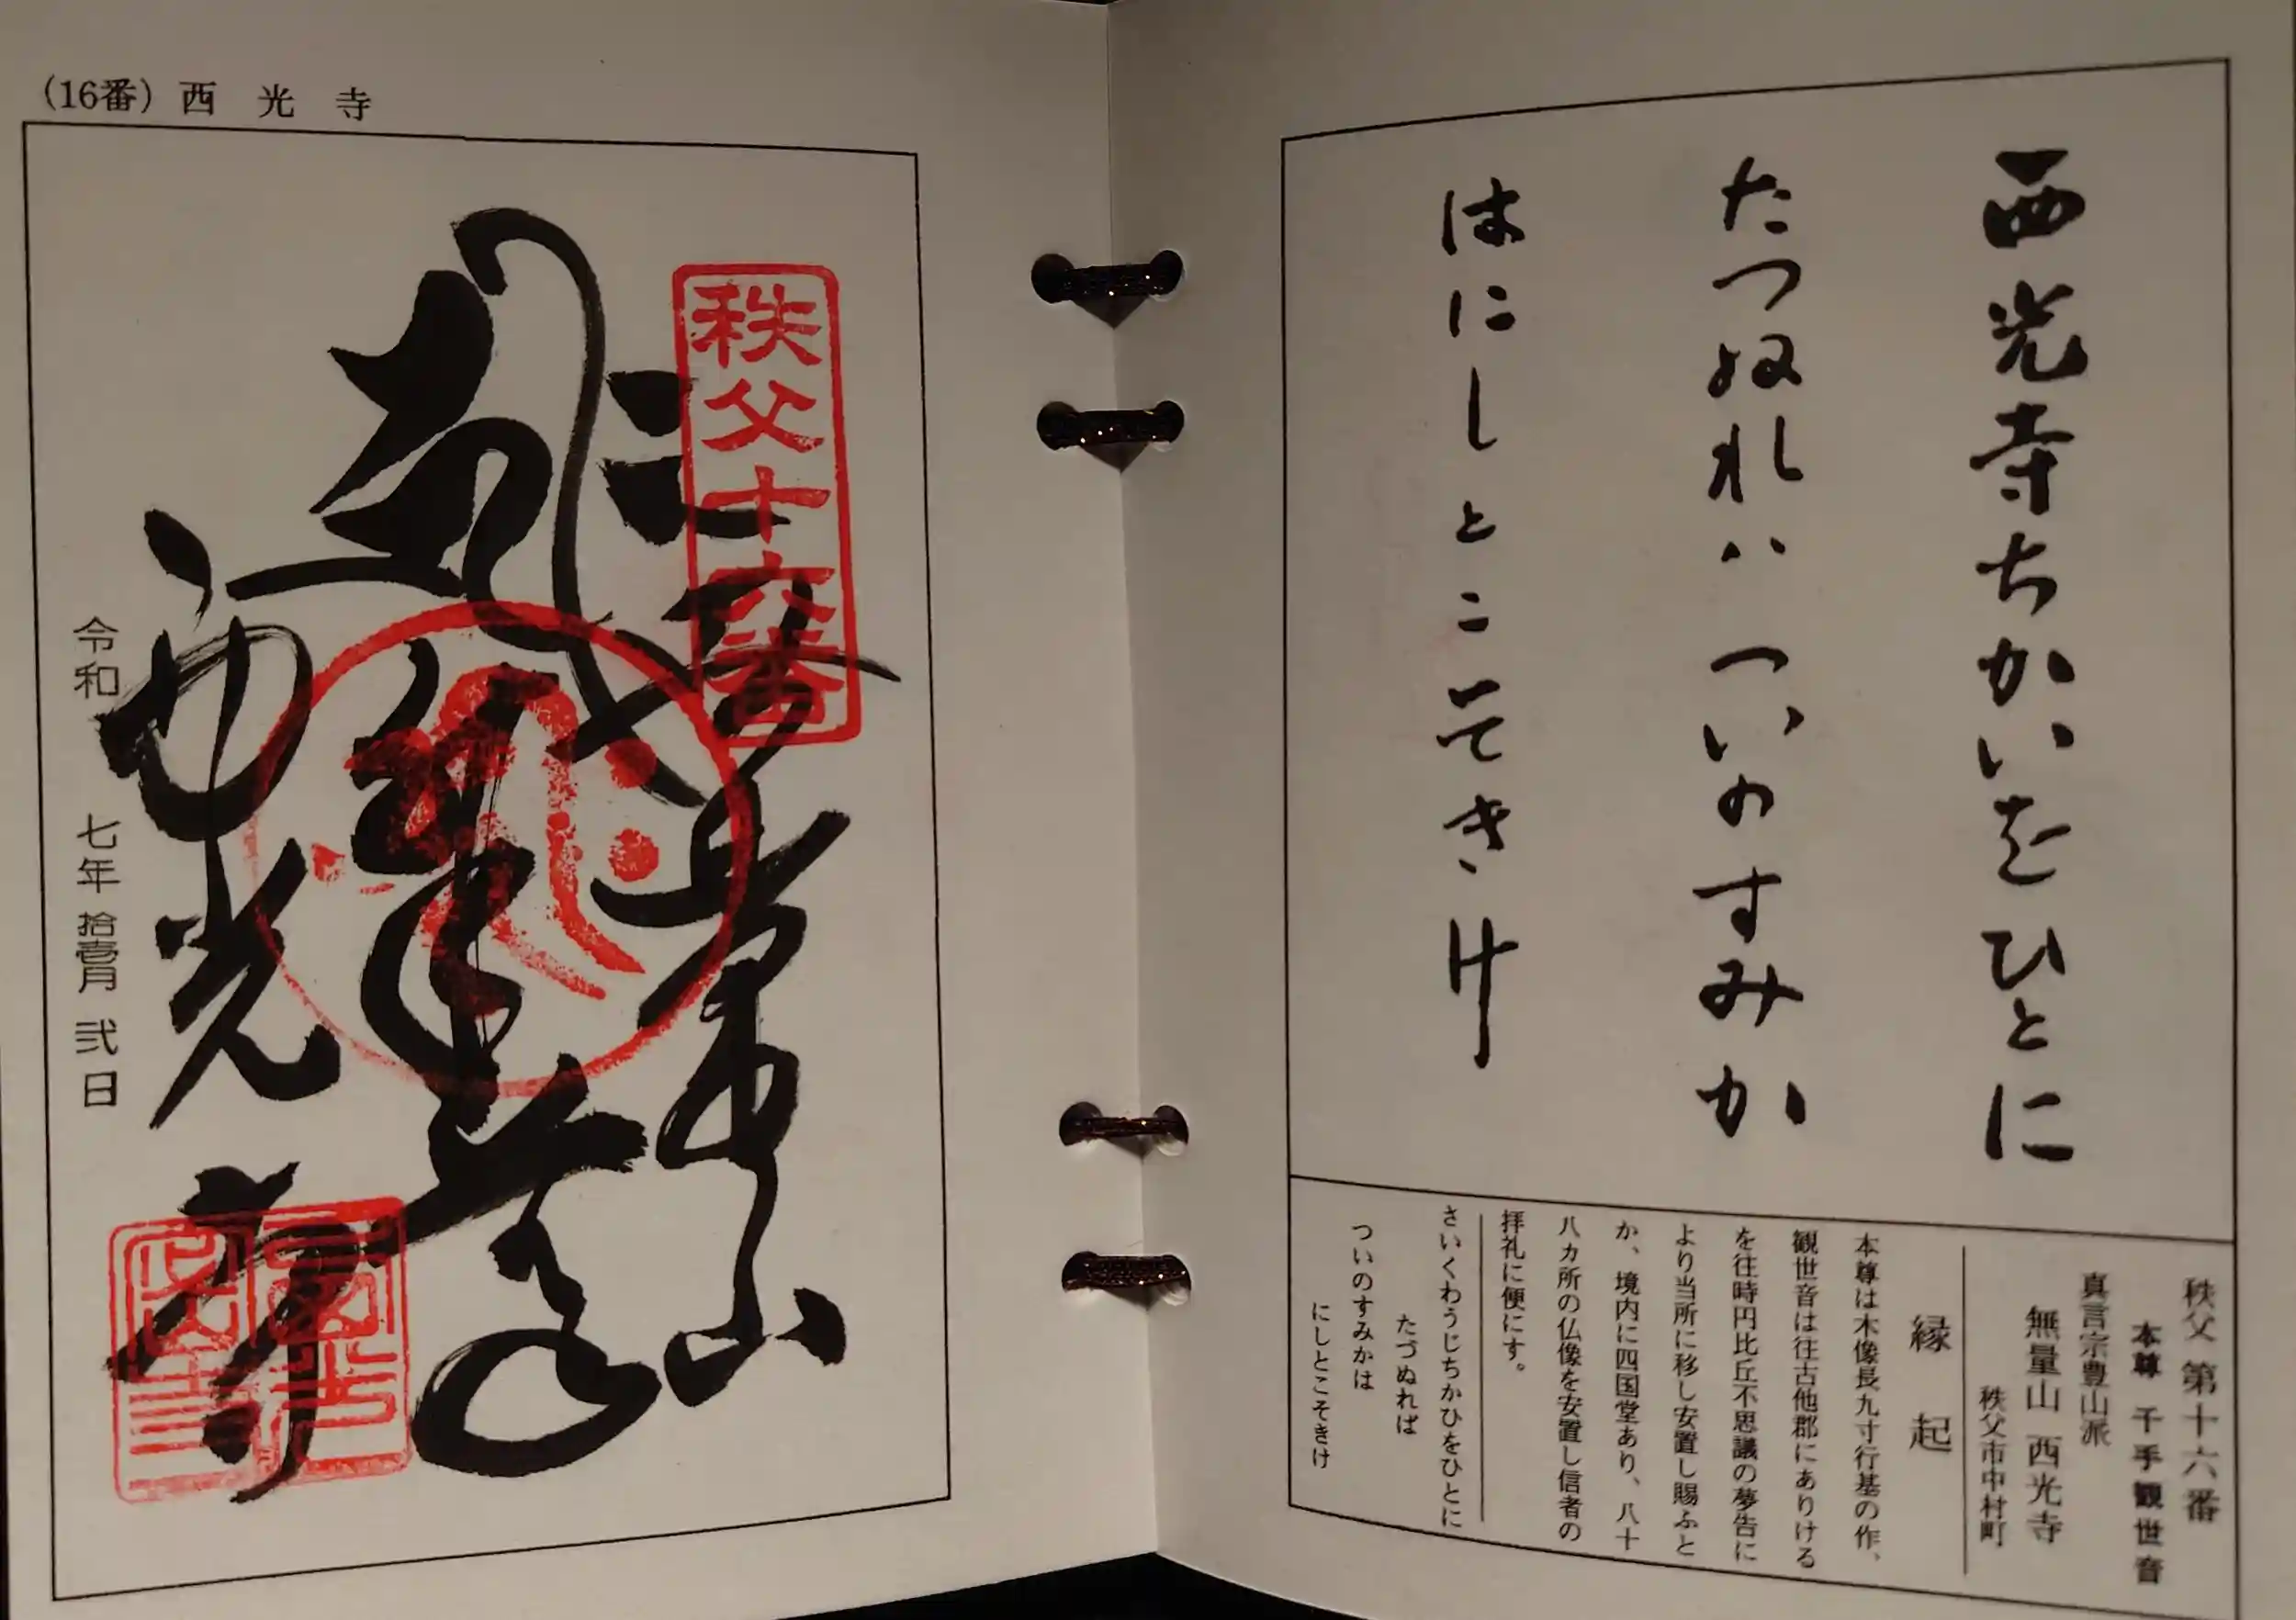 西光寺ちかいをひとに
たつぬれハついのすみか
はにしとこそきけ
秩父 第十六番
本尊 千手観世音
真言宗豊山派
無量山 西光寺
秩父市中村町
縁起
本尊は木像長九寸行基の作、
観世音は往古他郡にありける
を往時円比丘不思議の夢告に
より当所に移し安置し賜ふと
か、境内に四国堂あり、八十
八カ所の仏像を安置し信者の
拝礼に便にす。
さいくわうじちかひをひとに
たづぬれば
ついのすみかは
にしとこそきけ
(16番) 西光寺
秩父十六番
西光寺
令和 七年 拾壱月 弐日